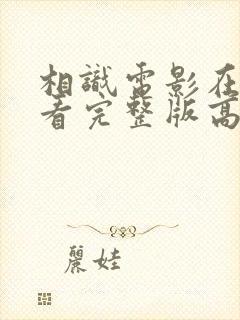 相識電影在
看完整版高
麗娃